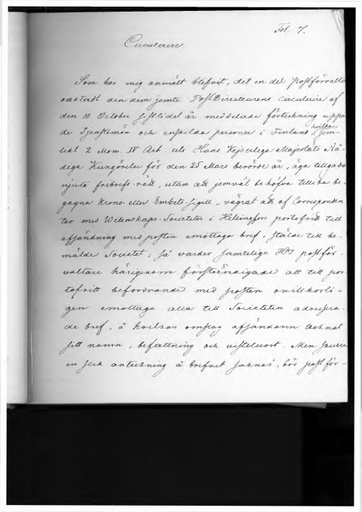 Fol. 7.
Circulaire.
Som hos mig anmält blifvit, det en del Postförvaltare
oacktadt den dem jemte PostDirecteurens Circulaire af
den 10. October sistlidet år meddelade förtekning uppå
de Tjenstemän och enskilda personer i Finland hvilka jem-
likt 2 Mom. IV Art. uti Hans Kejserliga Majestäts Nå-
diga Kungörelse för den 25 Mars berörde år, äga tillgodo-
njuta fribrefs-rätt, utan att jemväl behöfva dertill be-
gagna Krono eller Embets Sigill, vägrat att af Corresponden-
ter med Vetenskaps-Societeten i Helsingfors portofritt till
afsändning med posten emottaga bref, stälde till be-
mälde Societet; Så varder samtelige Hrr postför-
valtare härigenom försternådigade att till por-
tofritt befordrande med posten ovillkorli-
gen emottaga alla till Societeten adresse-
rade bref, å hvilkas omslag afsändaren tecknat
sitt namn, befattning och vistelseort. Men skulle
en slik anteckning å brefvet saknas, bör postför-